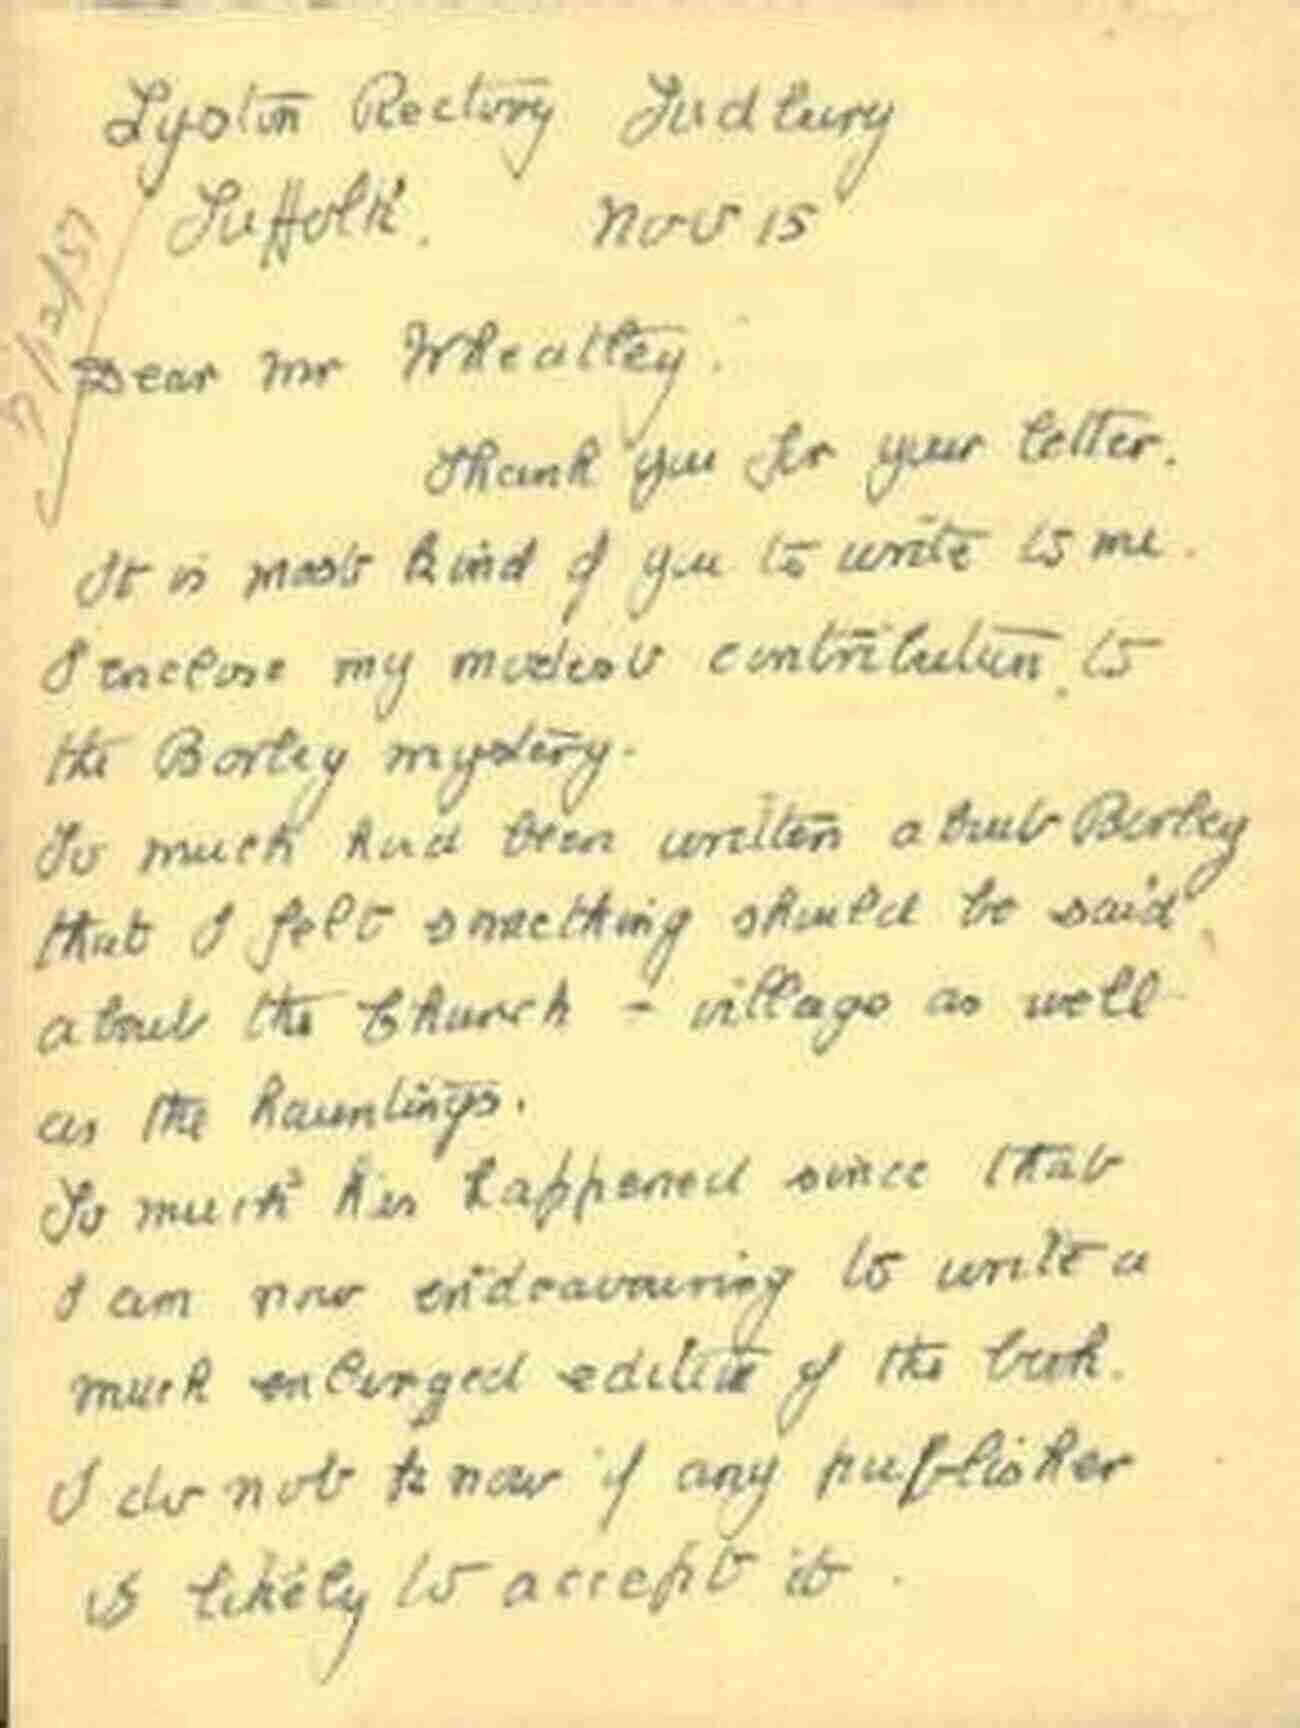 Lyston Rectory Sudbury
Suffolk. Nov 15
7/12/57
Dear Mr Wheatley.
Thank you for your letter.
It is most kind of you to write to me.
I enclose my modest contribution to
the Borley mystery.
So much had been written about Borley
that I felt something should be said
about the Church - village as well
as the hauntings.
So much has happened since that
I am now endeavouring to write a
much enlarged edition of the book.
I do not know if any publisher
is likely to accept it.